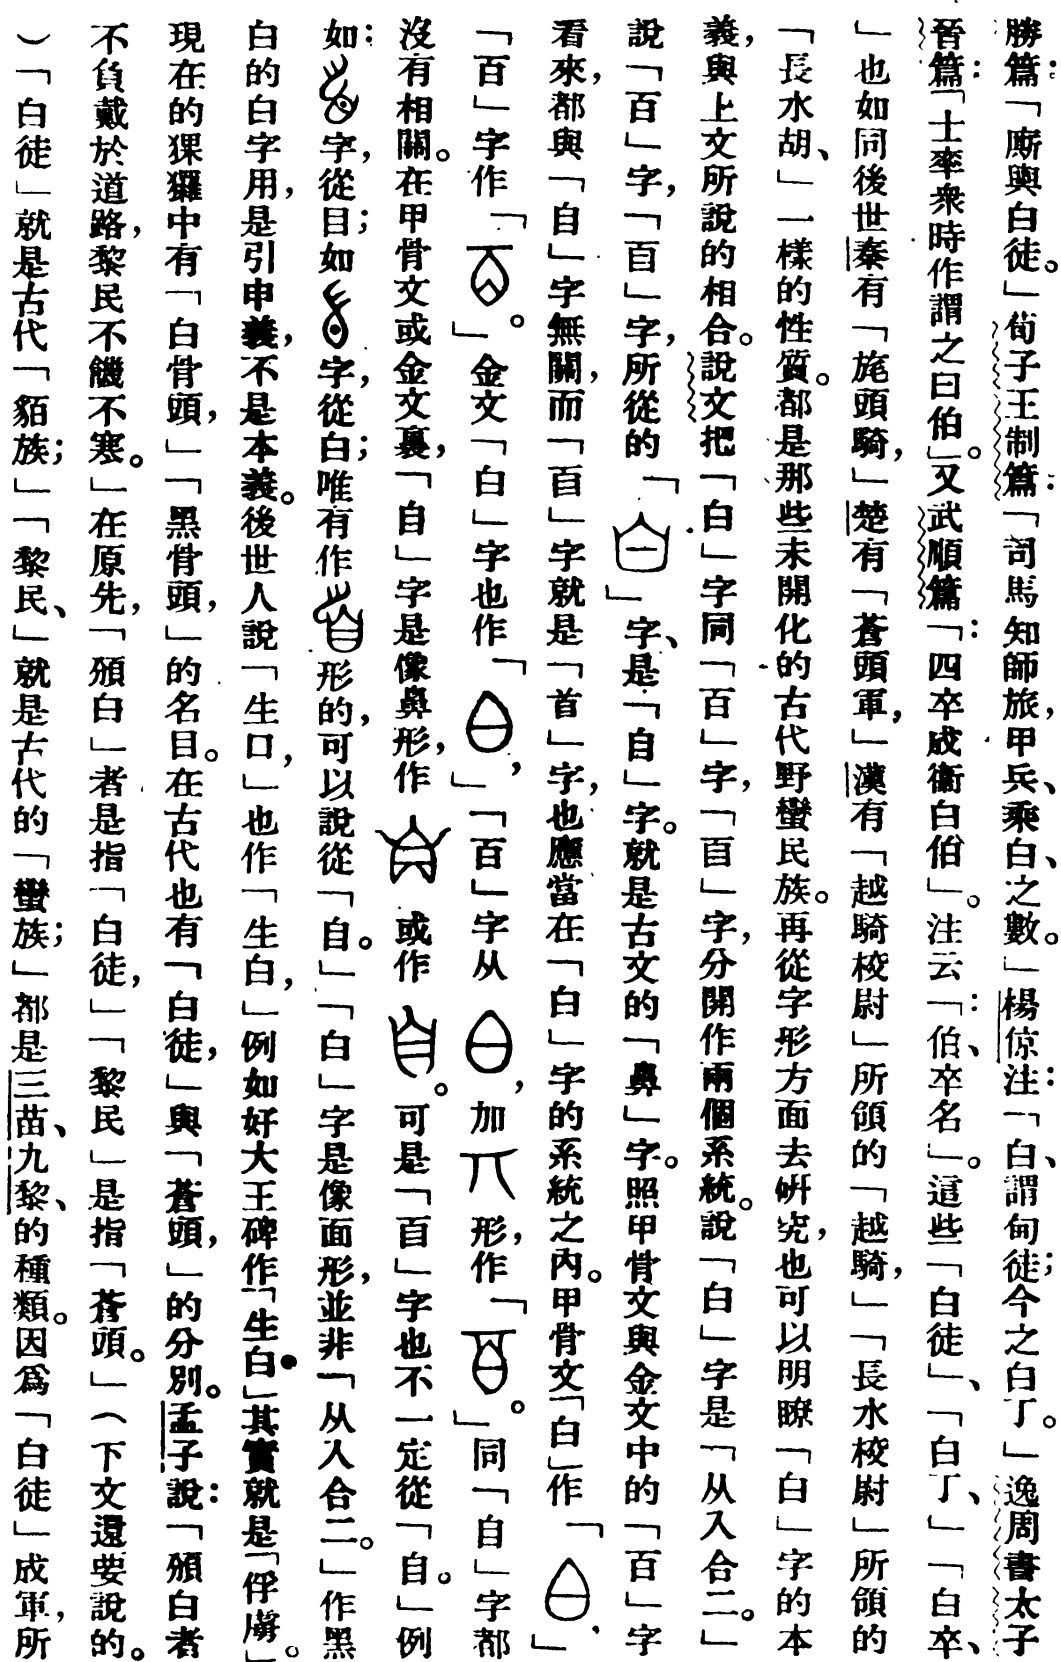 勝篇：「廝輿白徒。」荀子王制篇：「司馬知師旅，甲兵、乘白、之數。」楊倞注：「白、謂甸徒；今之白丁。」逸周書太子
晉篇：「士率衆時作謂之曰伯。」又武順篇：「四卒成衞白伯」。注云：「伯、卒名」。這些「白徒」、「白丁、」「白卒、
」也如同後世秦有「旄頭騎，」楚有「蒼頭軍，」漢有「越騎校尉」所領的「越騎，」「長水校尉」所領的
「長水胡、」一樣的性質。都是那些未開化的古代野蠻民族。再從字形方面去研究，也可以明瞭「白」字的本
義，與上文所說的相合。說文把「白」字同「百」字，「𦣻」字，分開作兩個系統。說「白」字是「从入合二。」
說「百」字，「𦣻」字，所從的「」字、是「自」字。就是古文的「鼻」字。照甲骨文與金文中的「百」字
看來，都與「自」字無關，而「𦣻」字就是「首」字，也應當在「白」字的系統之內。甲骨文「白」作「」、
「百」字作「」。金文「白」字也作「」，「百」字从，加形，作「」。同「自」字都
沒有相關。在甲骨文或金文裏，「自」字是像鼻形，作或作。可是「𦣻」字也不一定從「自。」例
如：字，從目；如字，從白；唯有作形的，可以說從「自。」「白」字是像面形，並非「从入合二。」作黑
白的白字用，是引申義，不是本義。後世人說「生口，」也作「生白，」例如好大王碑作「生白」其實就是「俘虜。」
現在的猓玀中有「白骨頭，」「黑骨頭，」的名目。在古代也有「白徒，」與「蒼頭，」的分別。孟子說：「頒白者
不負戴於道路，黎民不饑不寒。」在原先，「頒白」者是指「白徒，」「黎民」是指「蒼頭。」（下文還要說的。
）「白徒」就是古代「貊族；」「黎民、」就是古代的「蠻族；」都是三苗、九黎、的種類。因爲「白徒」成軍，所